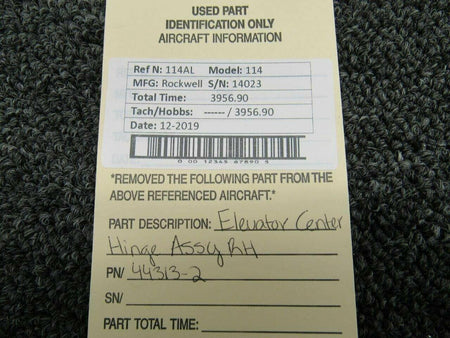 USED PART
IDENTIFICATION ONLY
AIRCRAFT INFORMATION
Ref N: 114AL Model: 114
MFG: Rockwell S/N: 14023
Total Time: 3956.90
Tach/Hobbs: ------ / 3956.90
Date: 12-2019
0 00 12345 67890 5
*REMOVED THE FOLLOWING PART FROM THE
ABOVE REFERENCED AIRCRAFT.*
PART DESCRIPTION: Elevator Center
Hinge Assy RH
PN/ 44313-2
SN/
PART TOTAL TIME: